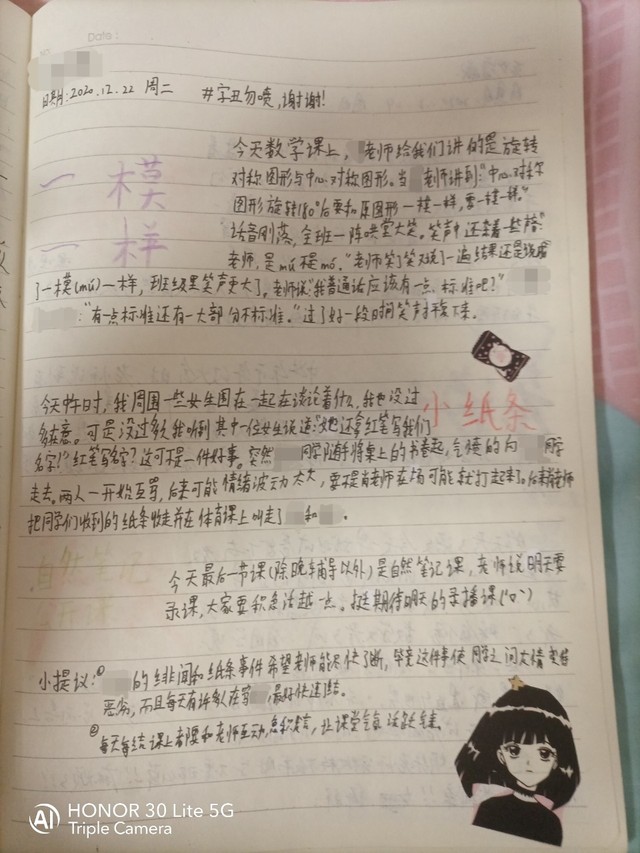 Date:
日期:2020.12.22 周二 #字丑勿喷,谢谢!
一模
一样
今天数学课上, 老师给我们讲的是旋转
对称图形与中心对称图形。当 老师讲到:"中心对称
图形旋转180°后要和原图形一模一样,要一模一样。"
话音刚落,全班一阵哄堂大笑。笑声中还夹着一些
老师,是mú不是mó。"老师笑了笑又说了一遍结果还是说成
了一模(mú)一样,班级里笑声更大了,老师说"我普通话应该有一点标准吧?"
:"有一点标准还有一大部分不标准。"过了好一段时间笑声才平复下来。
小纸条
今天中午时,我周围一些女生围在一起在谈论着什么,我也没过
多在意。可是没过多久我听到其中一位女生说道:"她还拿红笔写我们
名字!"红笔写名字?这可不是一件好事。突然 同学随手将桌上的书卷起,气愤的向 同学
走去。两人一开始互骂,后来可能情绪波动太大,要不是肖老师在场可能就打起来了。后来肖老师
把同学们收到的纸条收走并在体育课上叫走了 和 。
今天最后一节课(除晚辅导以外)是自然笔记课,老师说明天要
录课,大家要积极活跃一点。挺期待明天的录播课
小提议:① 的绯闻和纸条事件希望老师能尽快了断,毕竟这件事使同学之间友情变得
恶劣,而且每天有许多人在 ,最好快速了结。
②每天每结课上都要和老师互动,积极发言,让课堂气氛活跃
HONOR 30 Lite 5G
Triple Camera
AI